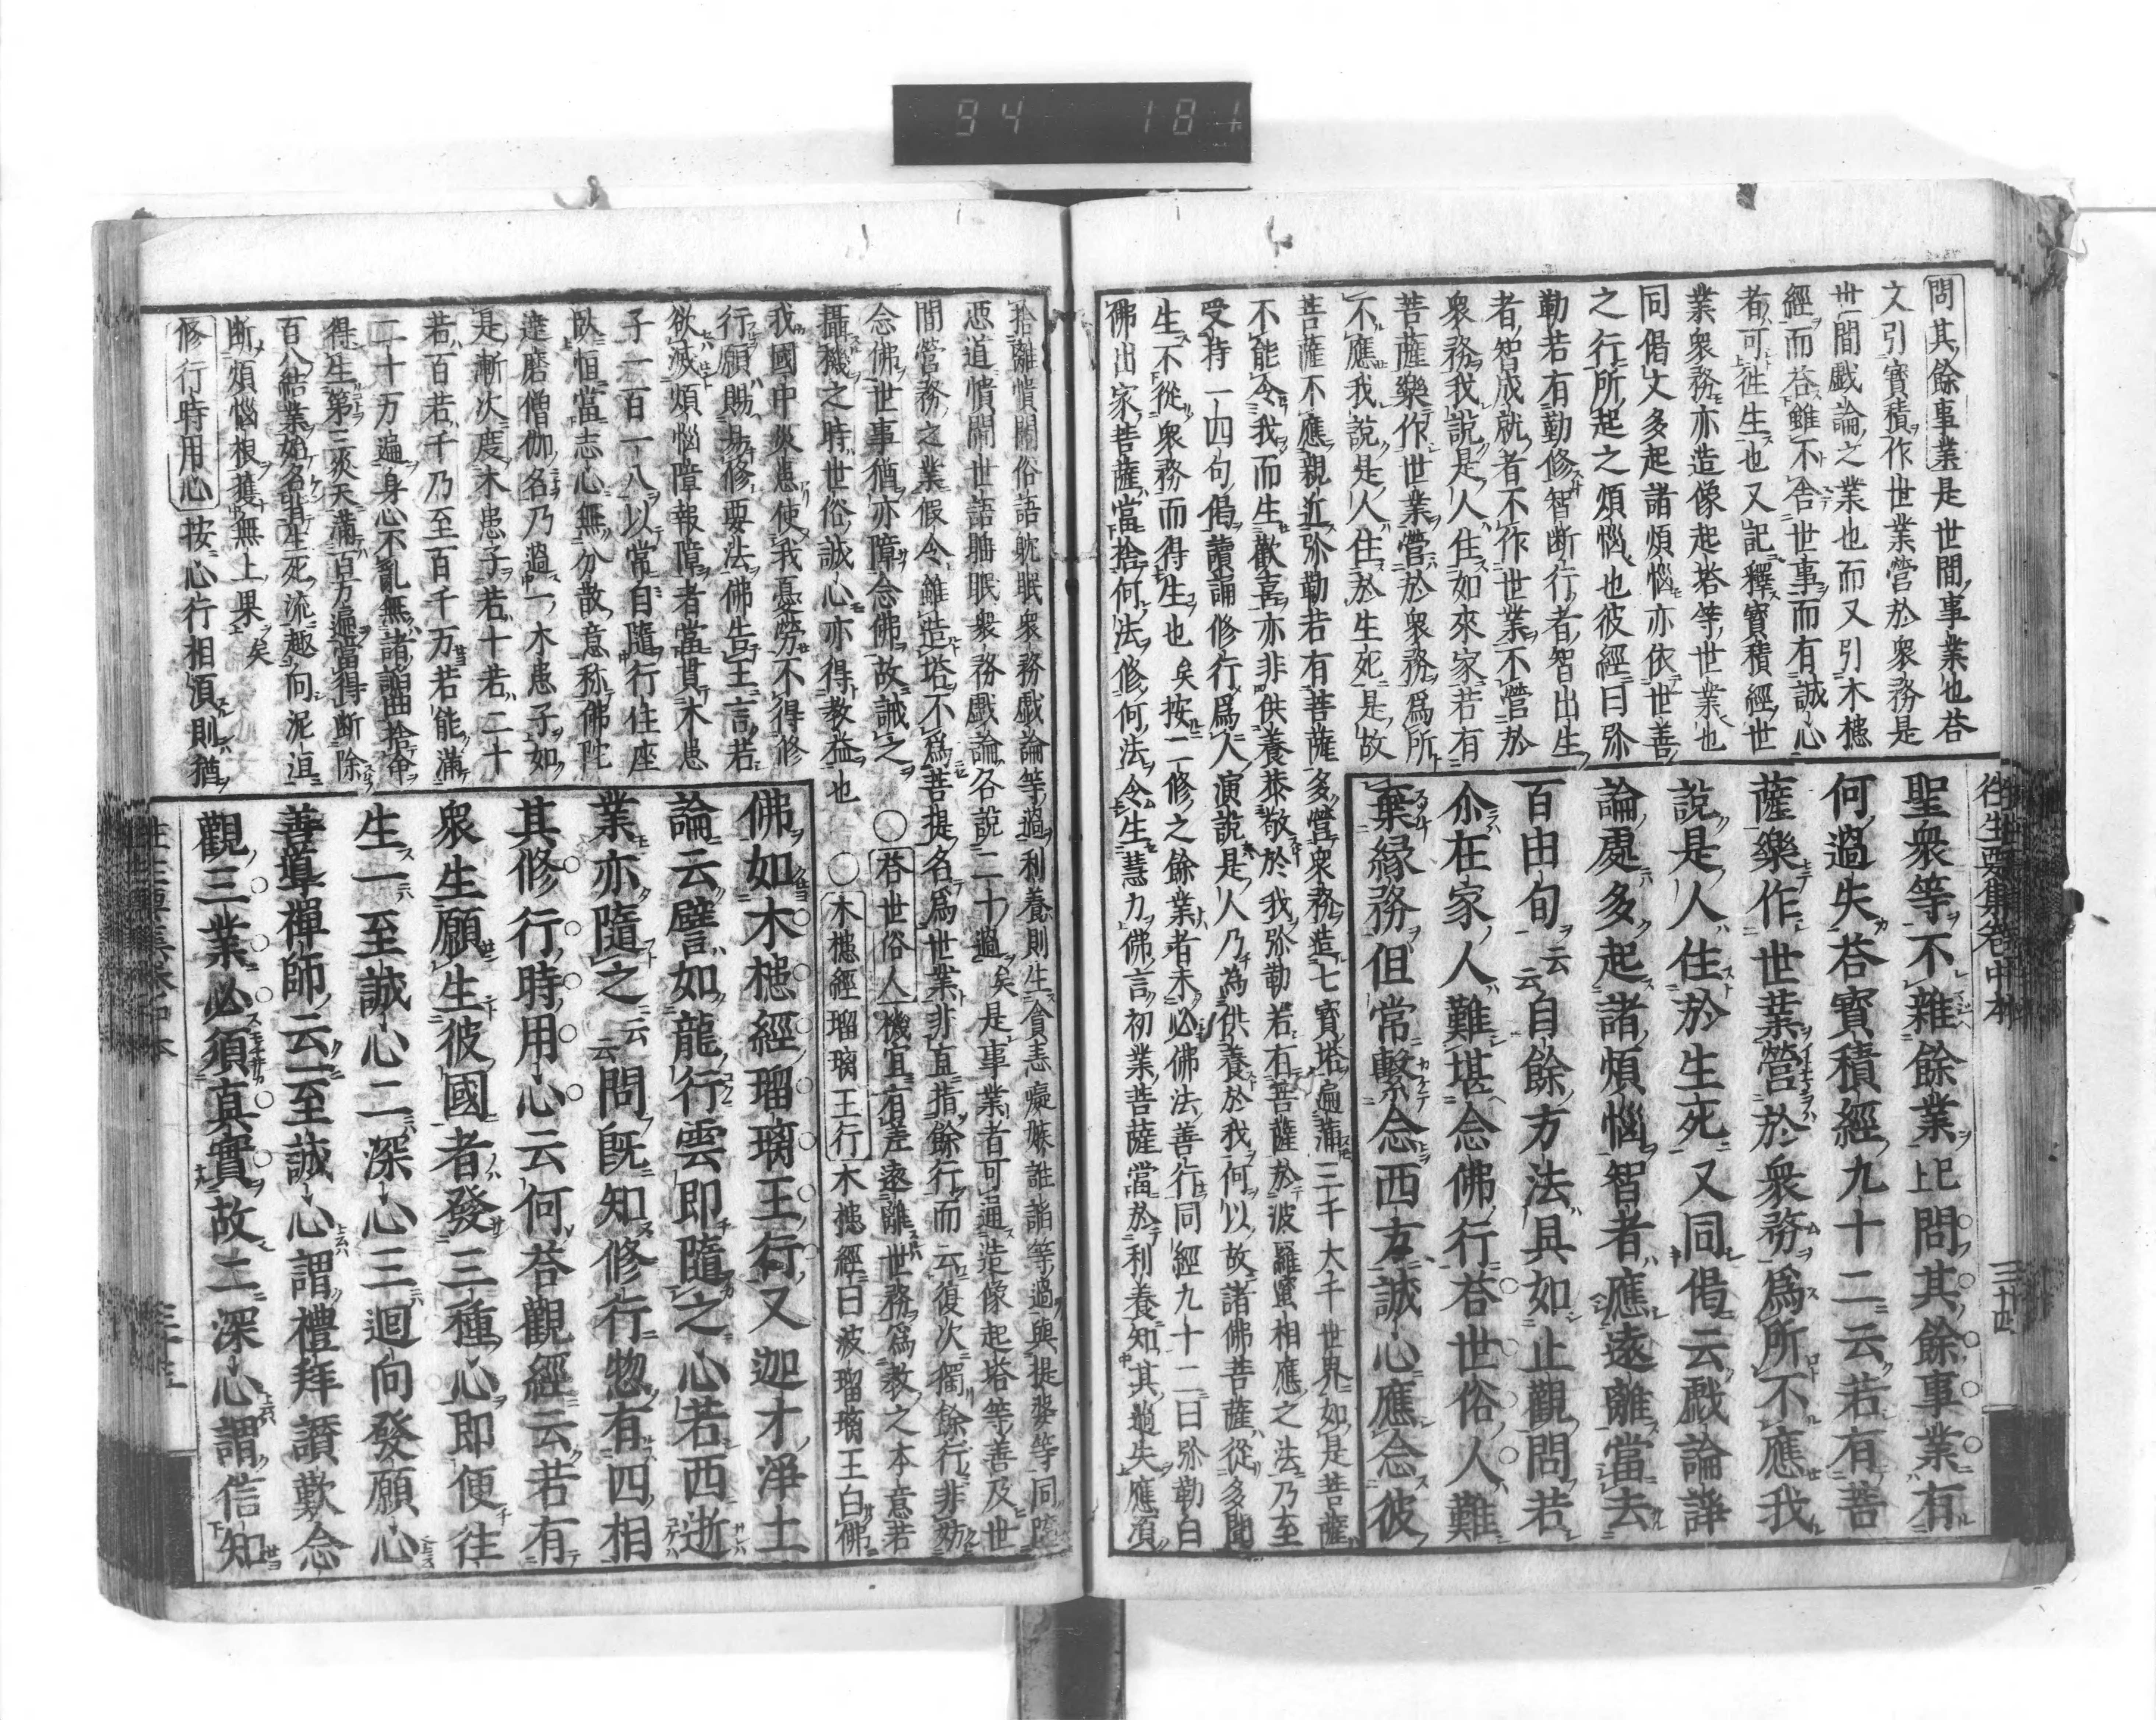 94 181
問其餘事業是世間事業也荅
文引寶積作世業營於衆務是
世間戯論之業也而又引木槵
經而荅雖不舍世事而有誠心
者可徃生也又記釋寶積經世
業衆務亦造像起塔等世業也
同偈文多起諸煩惱亦依世善
之行所起之煩惱也彼經曰弥
勒若有勤修智断行者智出生
者智成就者不作世業不營於
衆務我說是人住如來家若有
菩薩樂作世業營於衆務爲所
不應我說是人住於生死是故
菩薩不應親近弥勒若有菩薩多營衆務造七寶塔遍蒲三千大千世界如是菩薩
不能令我而生歡喜亦非供養恭敬於我弥勒若有菩薩於波羅蜜相應之法乃至
受持一四句偈讀誦修行爲人演說是人乃為供養於我何以故諸佛菩薩從多聞
生不從衆務而得生也矣按二修之餘業者未必佛法善行同經九十二曰弥勒白
佛出家菩薩當捨何法修何法令生慧力佛言初業菩薩當於利養知其過失應湏
徃生要集卷中本 三十四
聖衆等不雜餘業㔾問其餘事業有
何過失荅寶積經九十二云若有菩
薩樂作世業營於衆務爲所不應我
說是人住於生死又同偈云戯論諍
論處多起諸煩惱智者應遠離當去
百由旬云云自餘方法具如止觀問若
尒在家人難堪念佛行荅世俗人難
棄緣務但常繫念西方誠心應念彼
捨離憒閙俗語躭眠衆務戯論等過利養則生貪恚癡嫉誑諂等過與提婆等同墮
惡道憒閙世語睡眠衆務戯論各說二十過矣是事業者可通造像起塔等善及世
間營務之業假令雖造塔不爲菩提名爲世業非直指餘行而云復次獨餘行非妨
念佛世事猶亦障念佛故誡之○荅世俗人機宜有差遠離世務爲教之本意若
攝機之時世俗誠心亦得教益也○木槵經瑠璃王行木槵經曰波瑠璃王白佛
我國中災患使我憂勞不得修
行願賜易修要法佛告王言若
欲滅煩惱障報障者當貫木患
子一百一八以常自隨行住座
臥恒當志心無分散意称佛陀
達磨僧伽名乃過一木患子如
是漸次度木患子若十若二十
若百若千乃至百千万若能滿
二十万遍身心不亂無諸諂曲捨命
得生第三炎天滿百万遍當得断除
百八結業始名背生死流趣向泥洹
断煩惱根獲無上果矣
修行時用心按心行相湏則猶
佛如木槵經瑠璃王行又迦才淨土
論云譬如龍行雲即隨之心若西逝
業亦隨之云云問旣知修行惣有四相
其修行時用心云何荅觀經云若有
衆生願生彼國者發三種心即便徃
生一至誠心二深心三迴向發願心
善導禪師云一至誠心謂禮拜讃歎念
觀三業必須真實故二深心謂信知